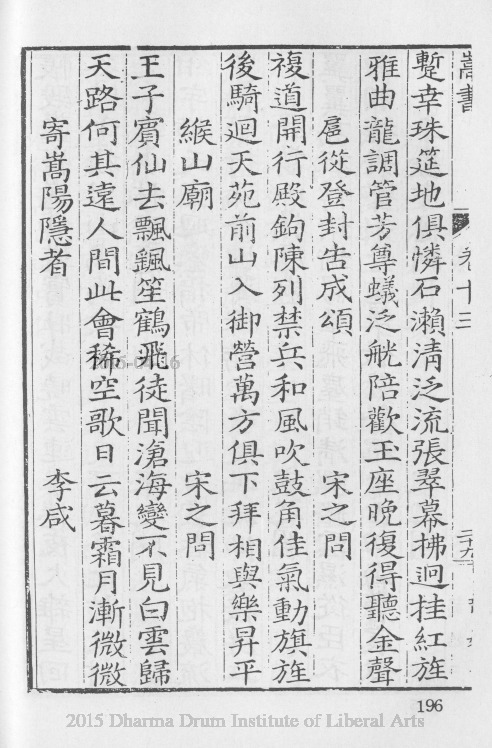 嵩書
卷十三
二十九
蹔幸珠筵地俱憐石瀨淸泛流張翠幕拂迥挂紅旌
雅曲龍調管芳尊蟻泛觥陪歡玉座晩復得聽金聲
扈從登封告成頌 宋之問
複道開行殿鉤陳列禁兵和風吹鼓角佳氣動旗旌
後騎迴天苑前山入御營萬方俱下拜相與樂昇平
緱山廟 宋之問
王子賓仙去飄颻笙鶴飛徒聞滄海變不見白雲歸
天路何其遠人間此會稀空歌日云暮霜月漸微微
寄嵩陽隱者 李咸
196
2015 Dharma Drum Institute of Liberal Arts